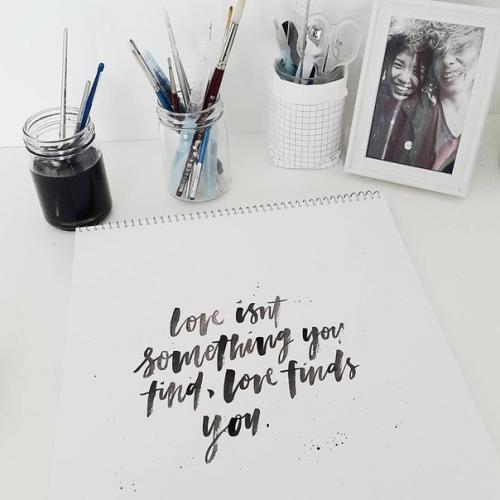 love isnt
something you
find, love finds
you.